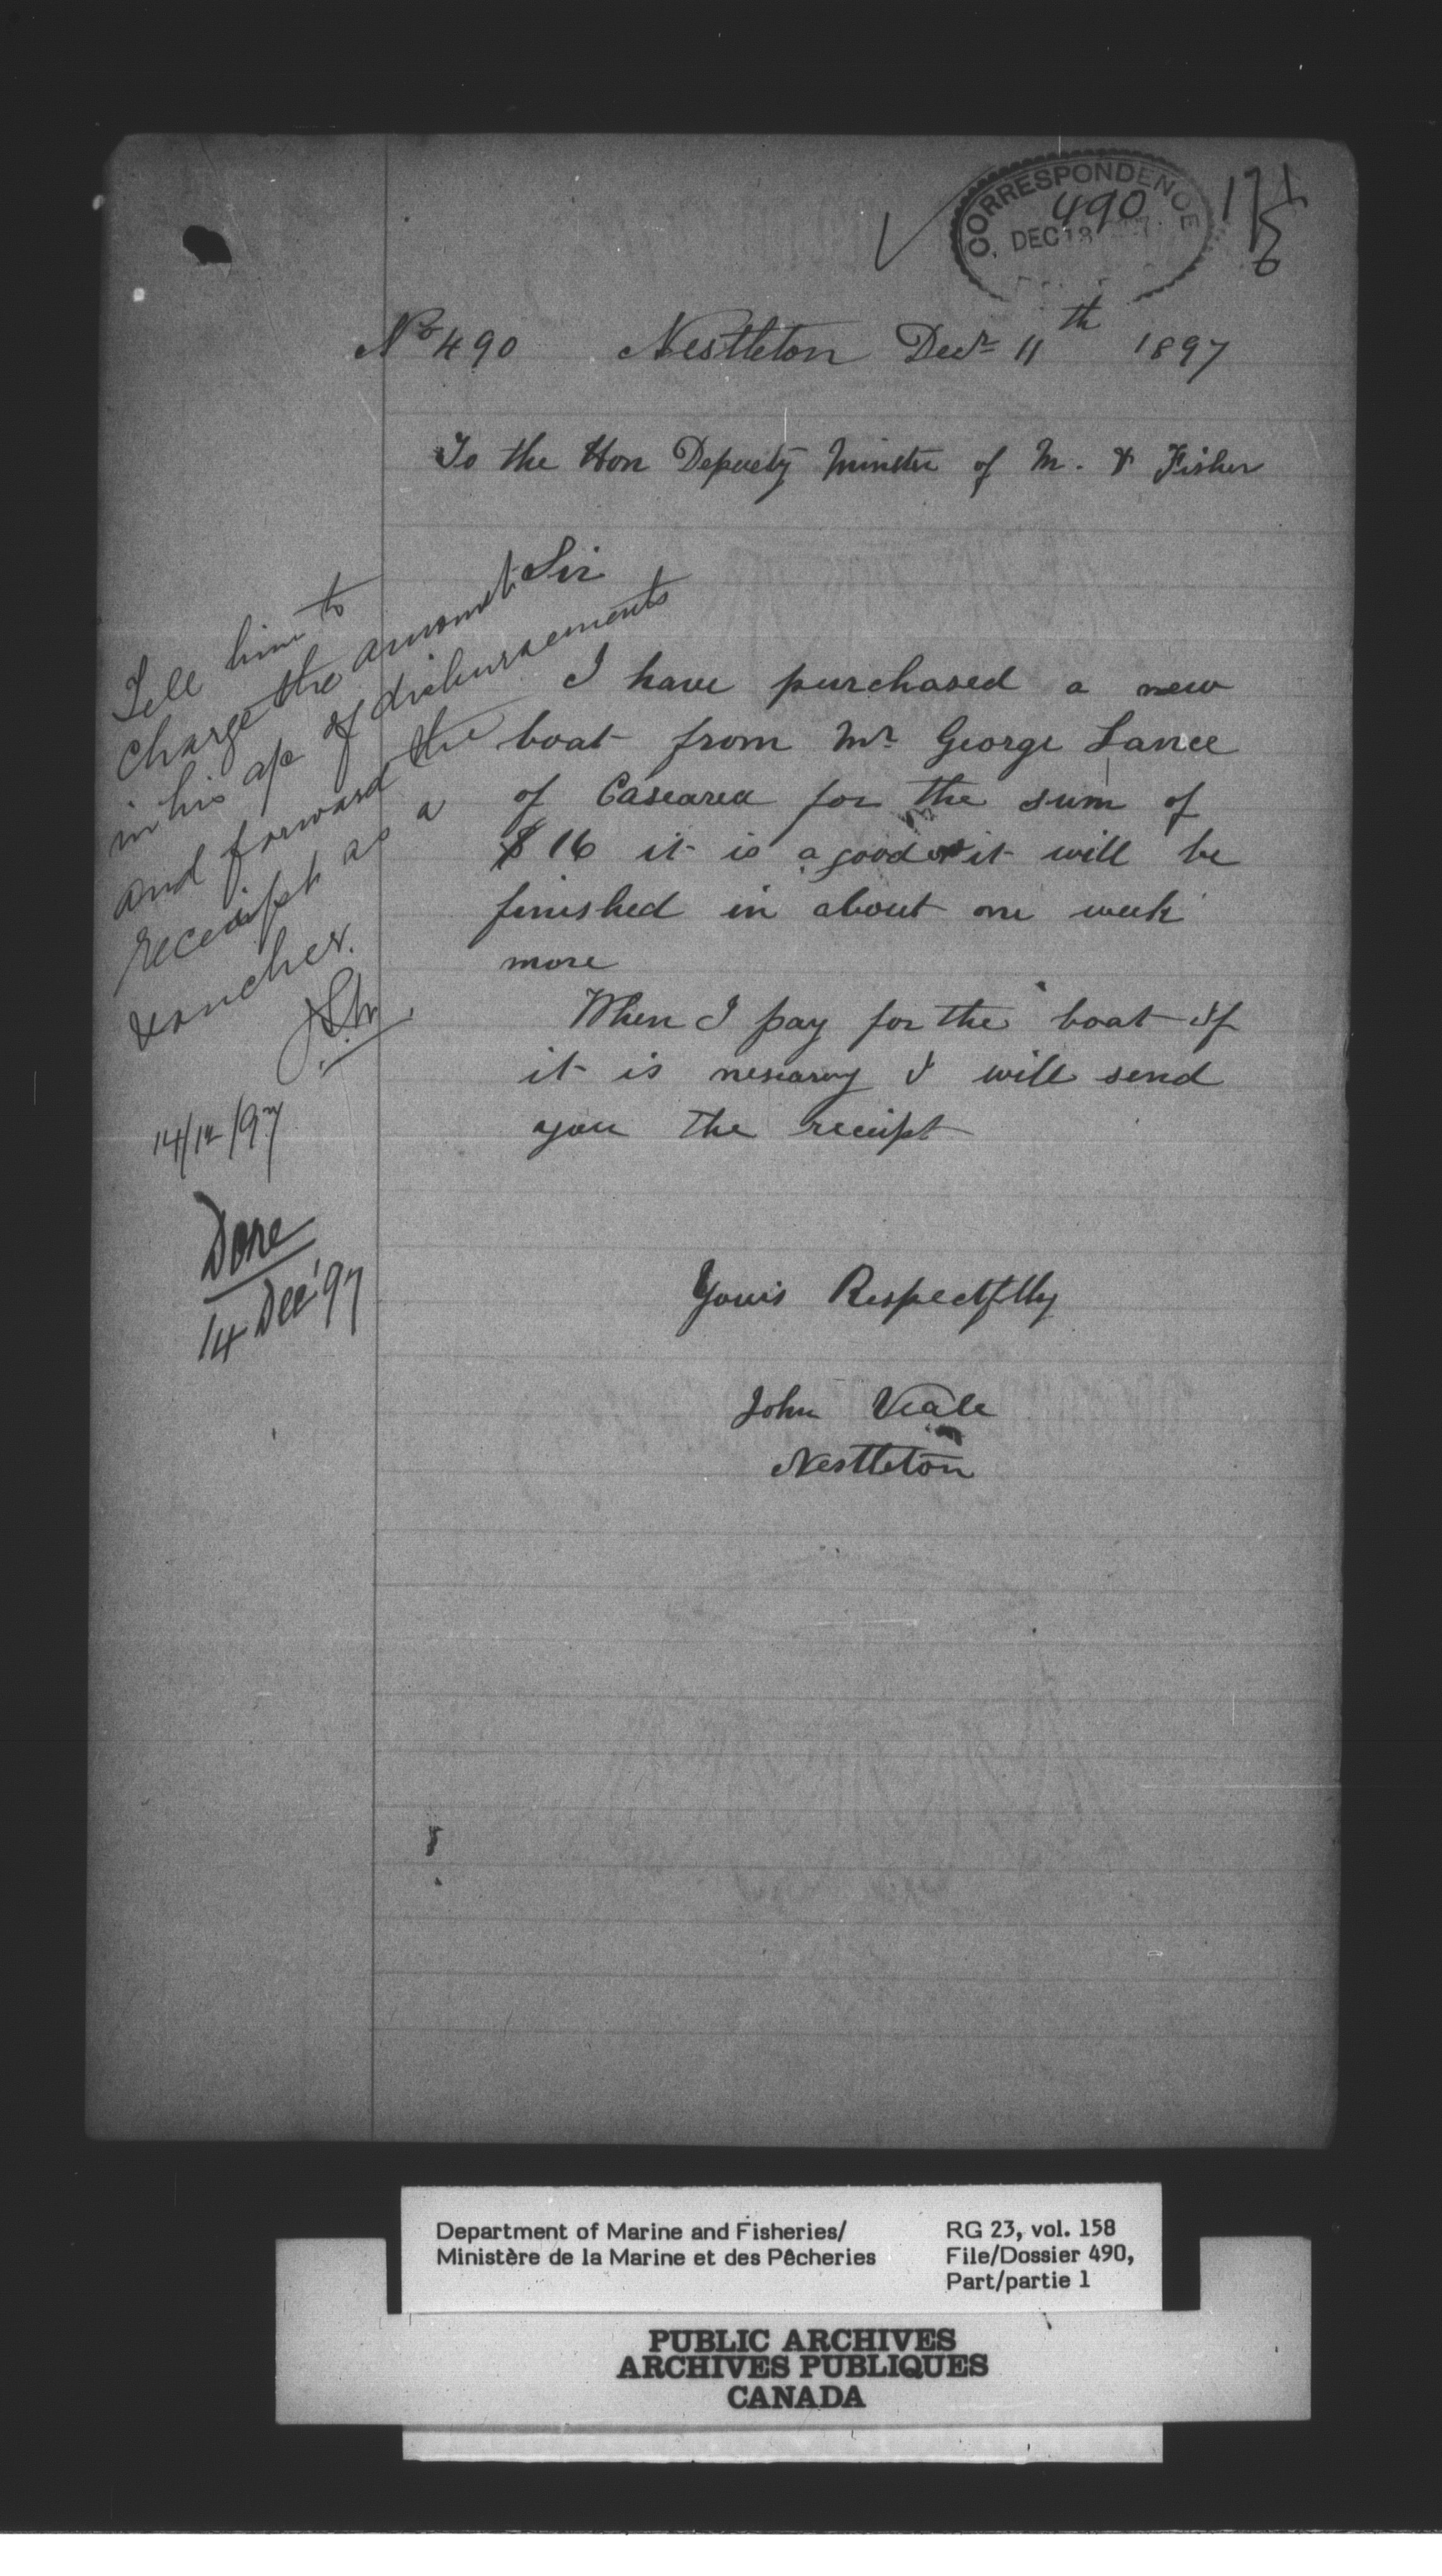 CORRESPONDENCE
490
DEC 13
No 490 Nestleton Decr 11th 1897
To the Hon Depuety Minster of M. & Fisher
Sir
I have purchased a new
boat from Mr George Lance
of Casearea for the sum of
$16 it is a good it will be
finished in about one week
more
When I pay for the boat if
it is nesearey I will send
you the receipt
Yours Respectflly
John Veale
Nestleton
Tell him to
charge the amount
in his a/c of disbursements
and forward the
receipt as a
voucher.
14/12/97
Done
14 Dec '97
Department of Marine and Fisheries/
Ministère de la Marine et des Pêcheries
RG 23, vol. 158
File/Dossier 490,
Part/partie 1
PUBLIC ARCHIVES
ARCHIVES PUBLIQUES
CANADA